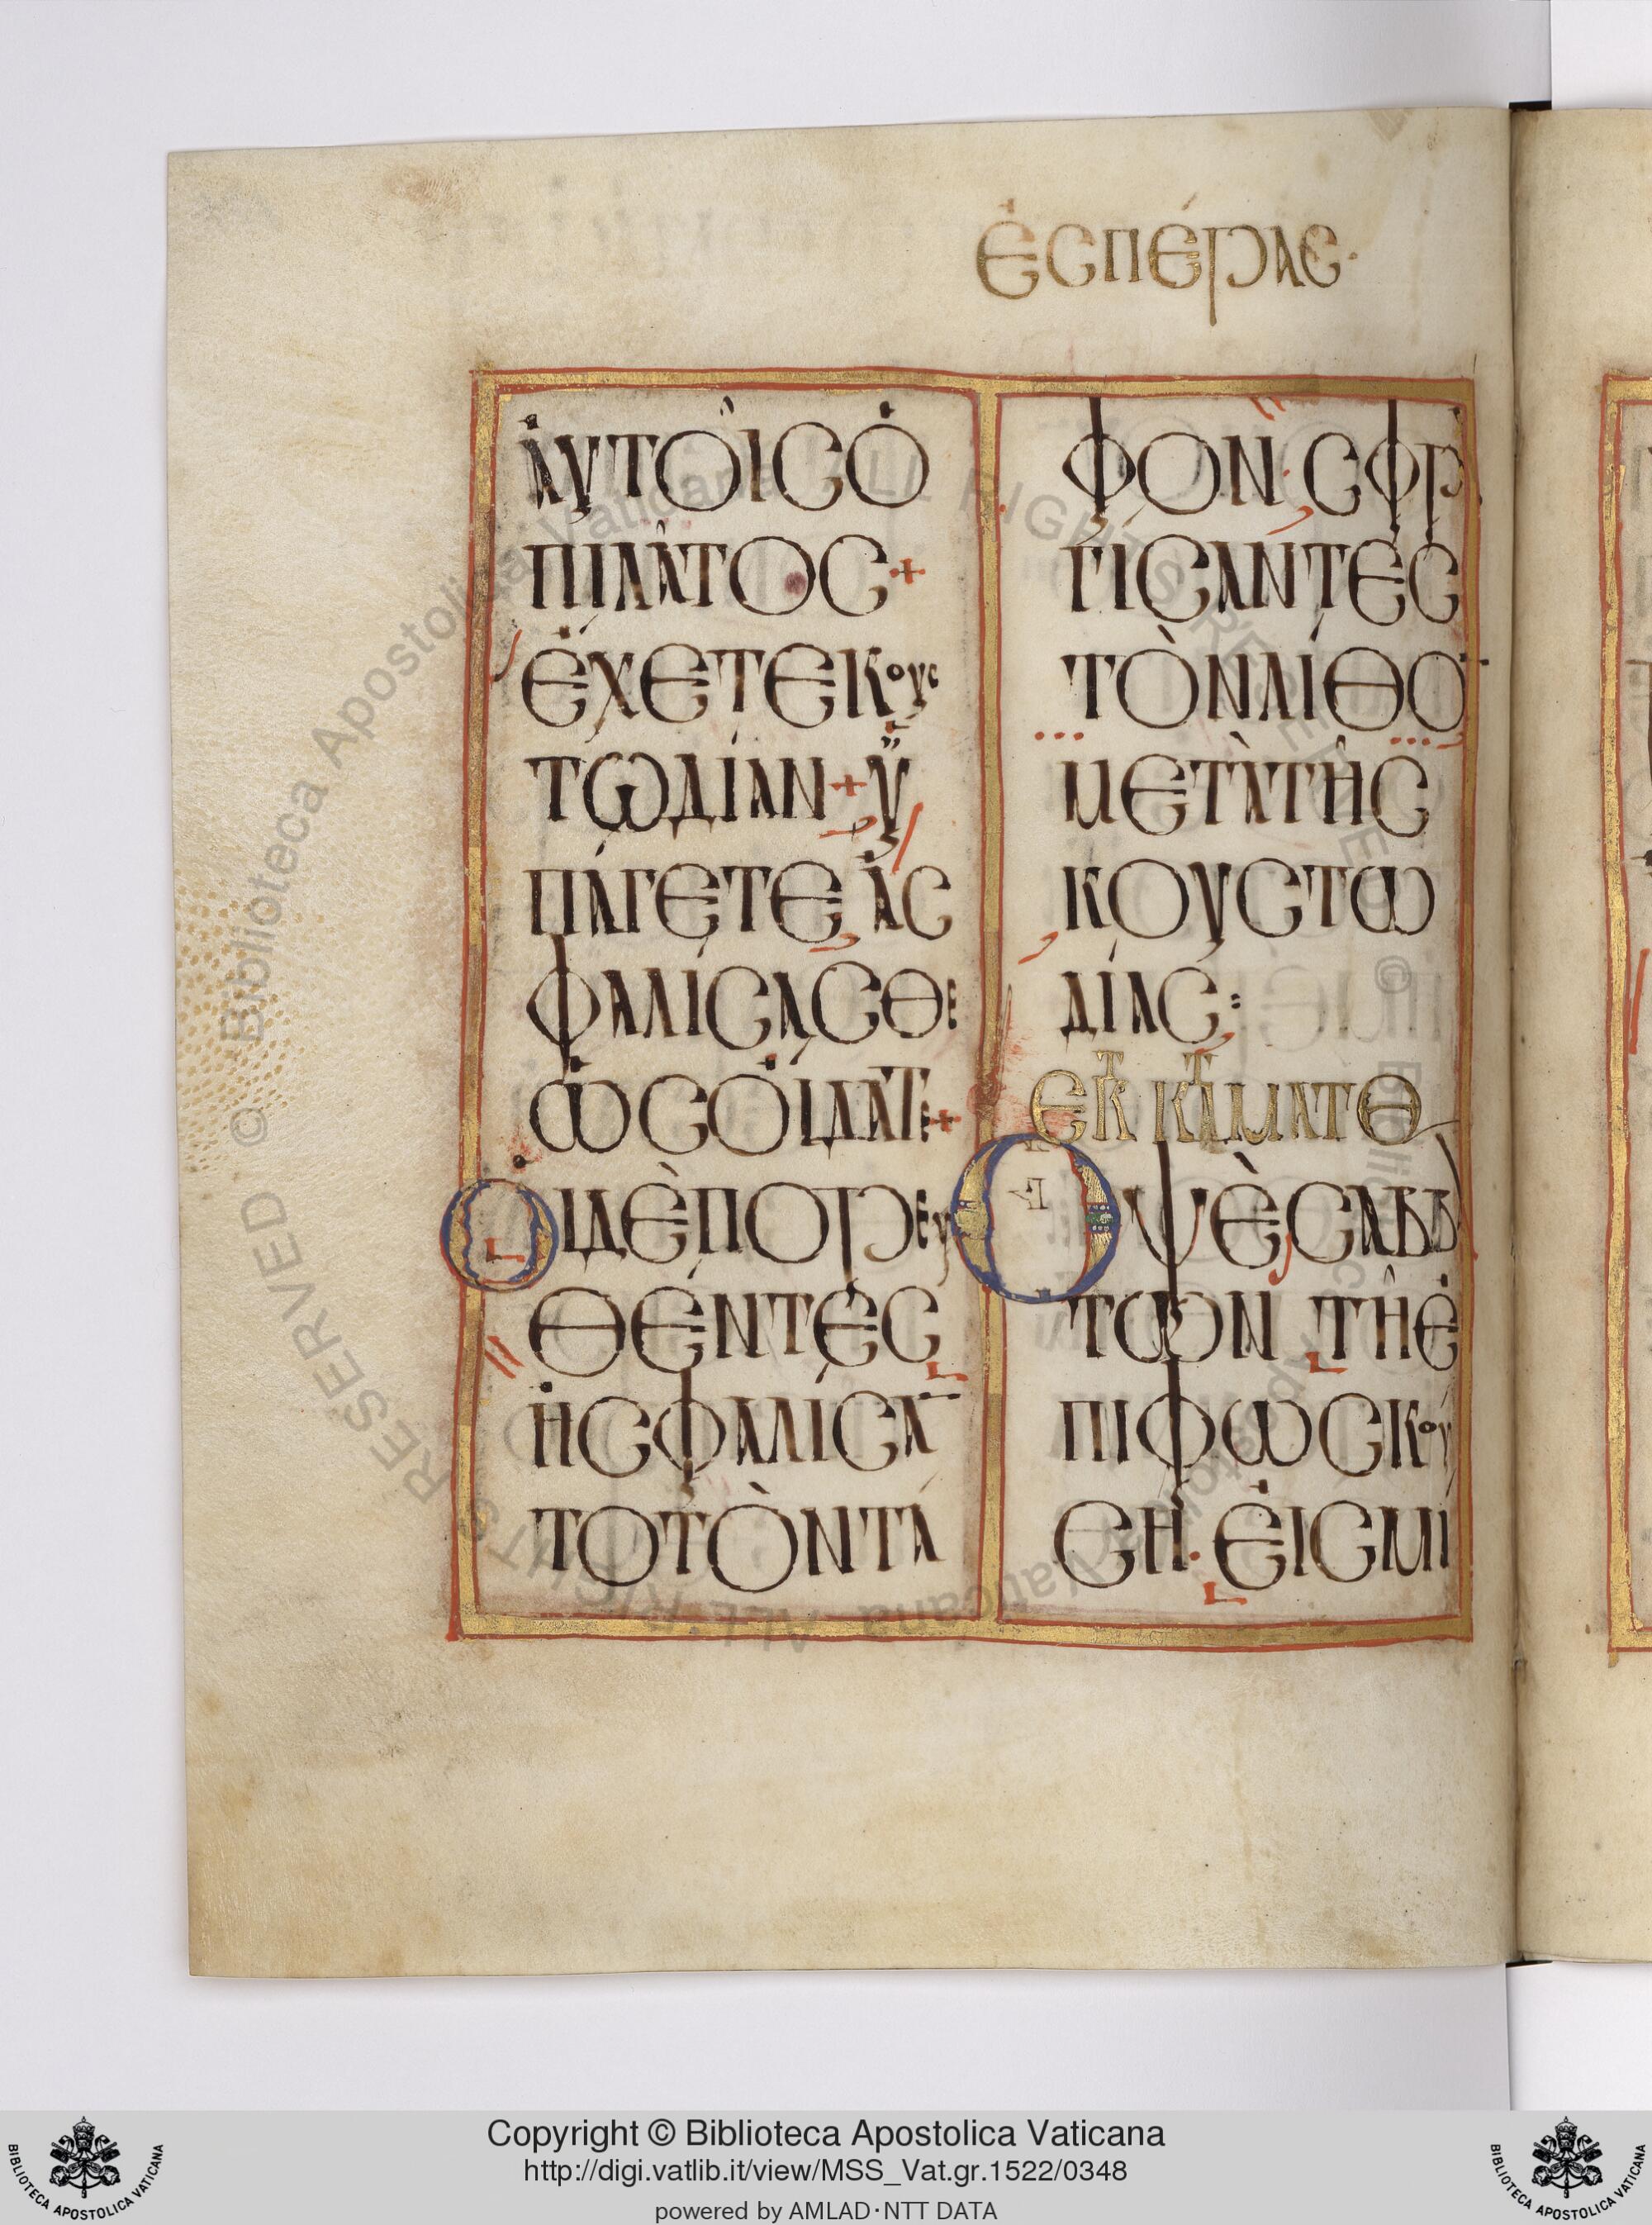 ἑσπέρας·
ἀυτοῖς ὁ
πιλάτος +
ἔχετε κους
τωδίαν + ὑ
πάγετε ἀς
φαλίσασθε
ὡς ὀίδατε +
Οἱ δὲ πορευ
θέντες
ἠσφαλίσα
το τὸν τά
φον· σφρα
γίσαντες
τὸν λίθο
μετὰ τῆς
κουστω
δίας :
εκ τ κτ ματθ
Ὀψὲ σαββ
τῶν τῆ ἐ
πιφωσκού
ση· ἐις μί
Biblioteca Apostolica Vaticana ALL RIGHTS RESERVED ©
Copyright © Biblioteca Apostolica Vaticana
http://digi.vatlib.it/view/MSS_Vat.gr.1522/0348
powered by AMLAD·NTT DATA
BIBLIOTECA APOSTOLICA VATICANA
BIBLIOTECA APOSTOLICA VATICANA